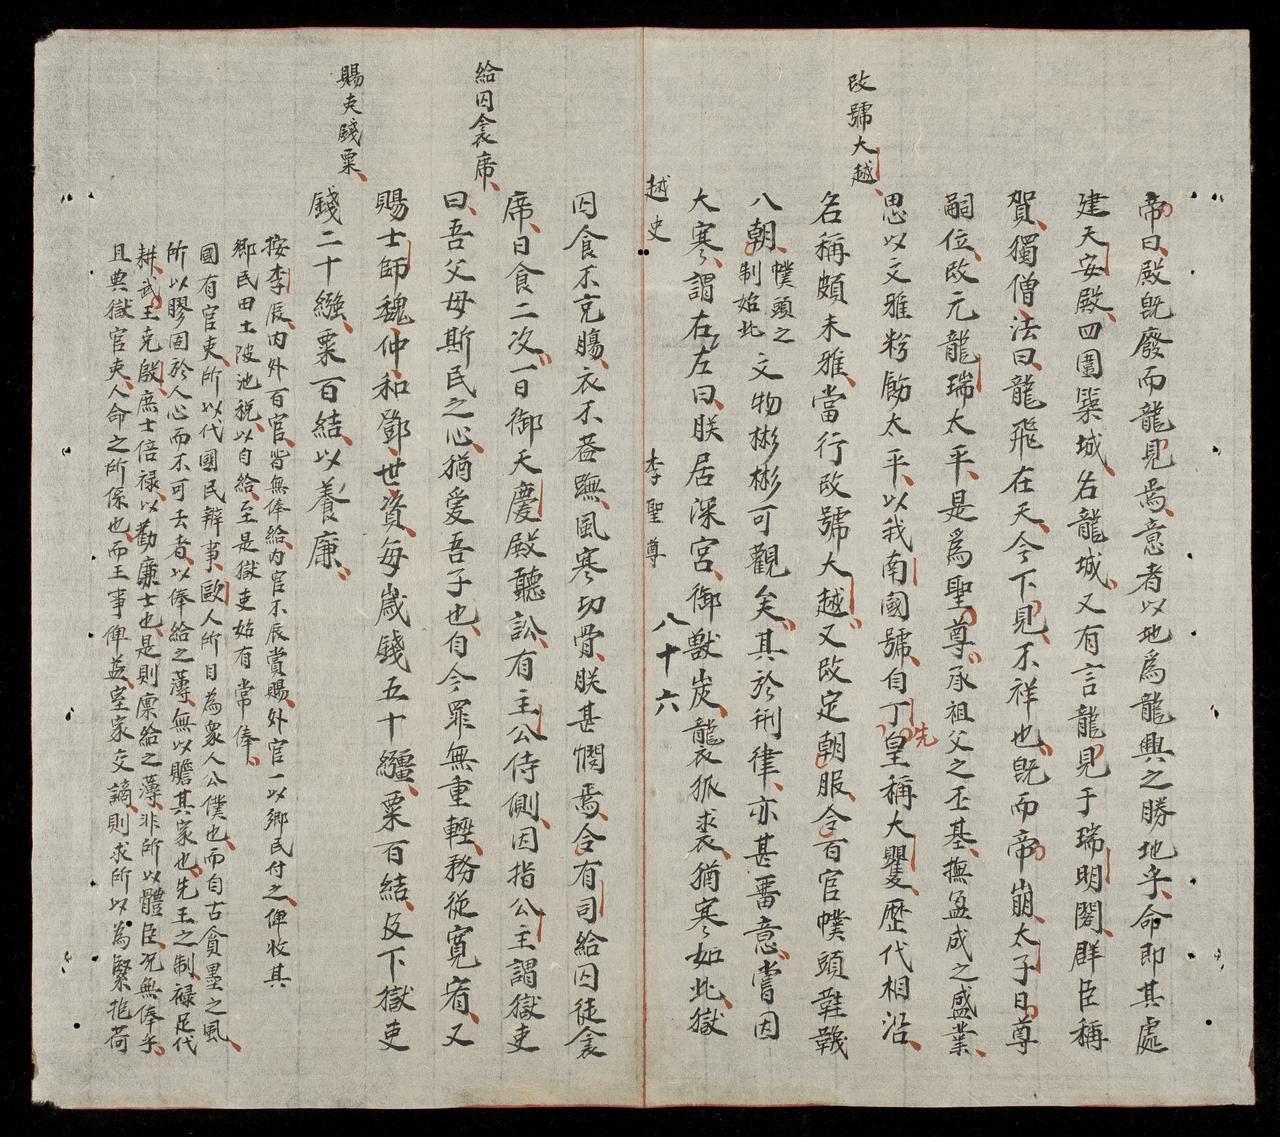 帝曰殿既廢而龍見焉意者以地爲龍興之勝地乎命即其處
建天安殿四圍築城名龍城又有言龍見于瑞明閣群臣稱
賀獨僧法曰龍飛在天今下見不祥也既而帝崩太子日尊
嗣位改元龍瑞太平是爲聖尊承祖父之丕基撫盈成之盛業
改號大越
思以文雅粉飾太平以我南國號自丁先皇稱大瞿歷代相沿
名稱頗未雅當行改號大越又改定朝服令百官幞頭鞋韈
八朝幞頭之
制始此文物彬彬可觀矣其於刑律亦甚畱意嘗因
大寒謂左右曰朕居深宮御獸炭龍衣狐裘猶寒如此獄
越史 李聖尊 八十六
囚食不充腸衣不蓋躰風寒切骨朕甚憫焉令有司給囚徒衾
給囚衾席
席日食二次一日御天慶殿聽訟有主公侍側因指公主謂獄吏
曰吾父母斯民之心猶愛吾子也自今罪無重輕務從寬宥又
賜士師魏仲和鄧世資每歲錢五十繦粟百結及下獄吏
賜吏錢粟
錢二十繦粟百結以養廉
按李辰內外百官皆無俸給內官不辰賞賜外官一以鄉民付之俾收其
鄉民田土陂池稅以自給至是獄吏始有常俸
國有官吏所以代國民辦事歐人所目為衆人公僕也而自古貪墨之風
所以膠固於人心而不可去者以俸給之薄無以贍其家也先王之制祿足代
耕武王克殷庶士倍祿以勸廉士也是則廩給之薄非所以體臣况無俸乎
且典獄官吏人命之所係也而王事俾益室家交謫則求所以為緊拖荷